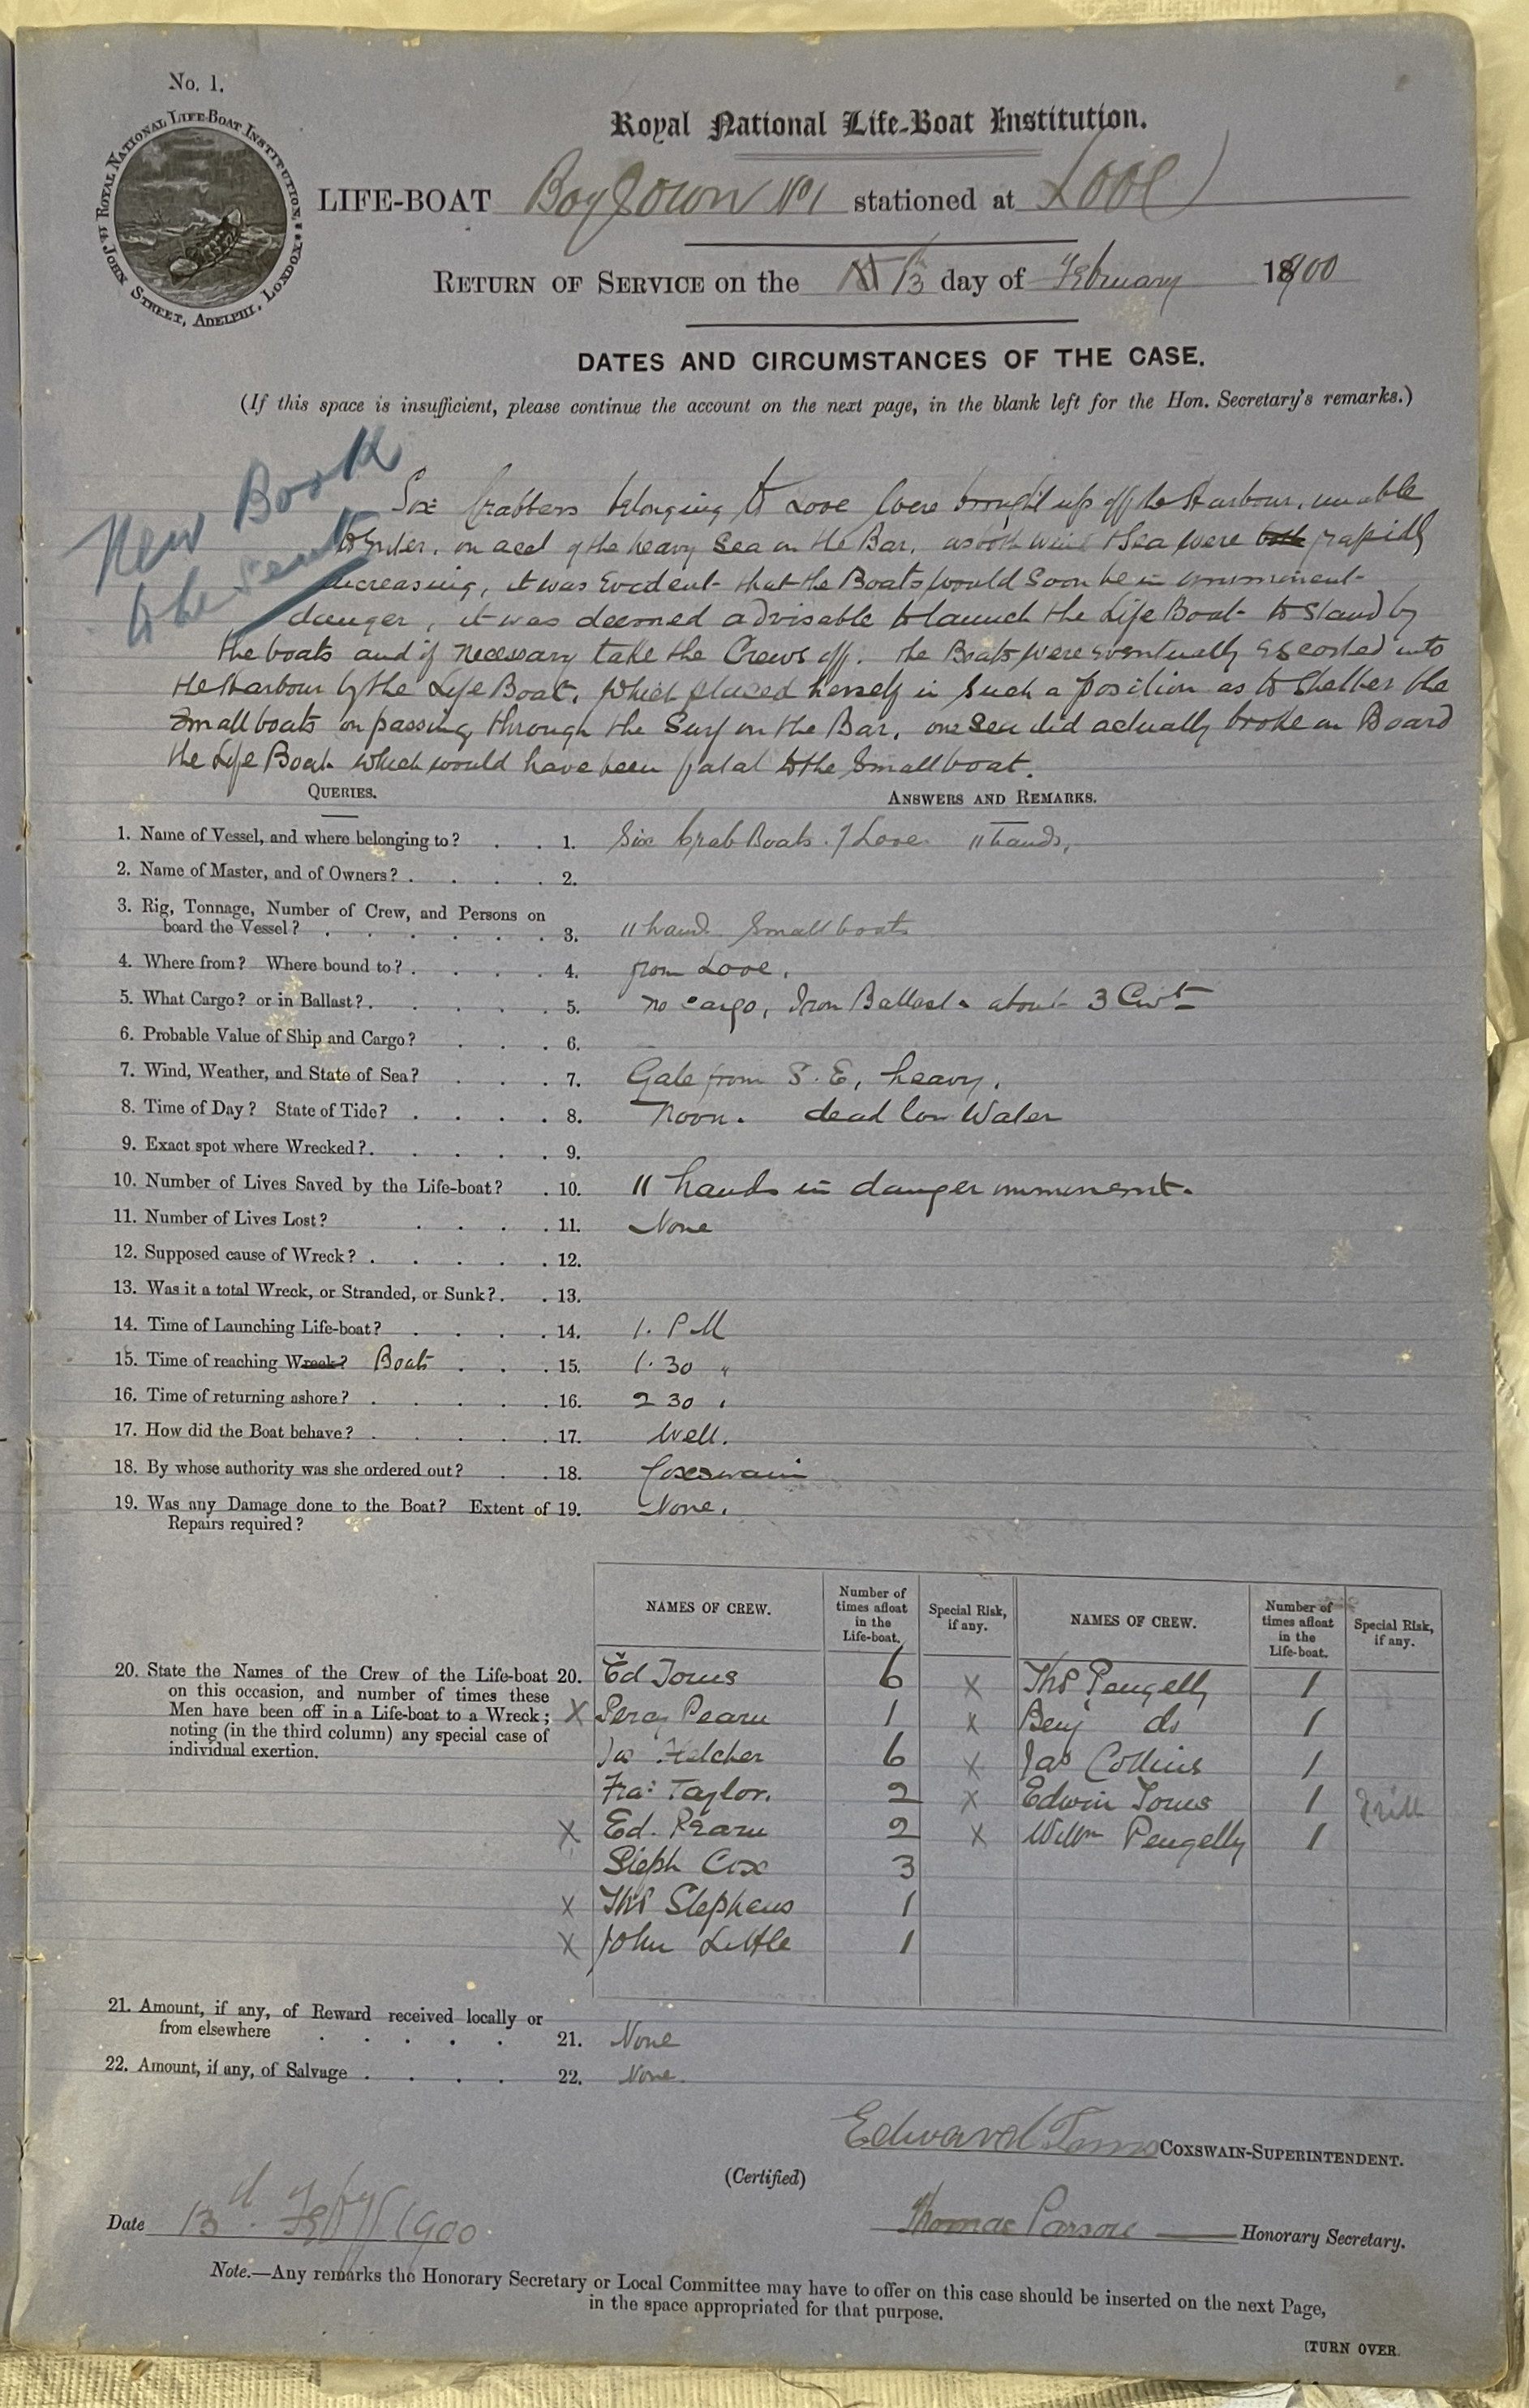 No. 1.
ROYAL NATIONAL LIFE-BOAT INSTITUTION
JOHN STREET, ADELPHI, LONDON
Royal National Life-Boat Institution.
LIFE-BOAT Boy's Own No1 stationed at Looe
RETURN OF SERVICE on the 13th day of February 1900
DATES AND CIRCUMSTANCES OF THE CASE.
(If this space is insufficient, please continue the account on the next page, in the blank left for the Hon. Secretary's remarks.)
New Book
to be sent
Six Crabbers belonging to Looe were brought up off the Harbour, unable
to Enter, on acct of the heavy Sea on the Bar, as both wind & Sea were both rapidly
increasing, it was Evident that the Boats would Soon be in imminent
danger, it was deemed advisable to launch the Life Boat to Stand by
the boats and if necessary take the Crews off. the Boats were eventually escorted into
the Harbour by the Life Boat, which placed herself in such a position as to Shelter the
Small boats on passing through the Surf on the Bar, one Sea did actually broke on Board
the Life Boat which would have been fatal to the Small boat.
QUERIES.
ANSWERS AND REMARKS.
1. Name of Vessel, and where belonging to? 1. Six Crab Boats of Looe 11 hands,
2. Name of Master, and of Owners? 2.
3. Rig, Tonnage, Number of Crew, and Persons on
board the Vessel? 3. 11 hand Small boats
4. Where from? Where bound to? 4. from Looe,
5. What Cargo? or in Ballast? 5. no cargo, Iron Ballast about 3 Cwt
6. Probable Value of Ship and Cargo? 6.
7. Wind, Weather, and State of Sea? 7. Gale from S.E, heavy,
8. Time of Day? State of Tide? 8. Noon. dead low Water
9. Exact spot where Wrecked? 9.
10. Number of Lives Saved by the Life-boat? 10. 11 hands in danger imminent.
11. Number of Lives Lost? 11. None
12. Supposed cause of Wreck? 12.
13. Was it a total Wreck, or Stranded, or Sunk? 13.
14. Time of Launching Life-boat? 14. 1. PM
15. Time of reaching Wreck? Boats 15. 1.30 "
16. Time of returning ashore? 16. 2 30 "
17. How did the Boat behave? 17. Well.
18. By whose authority was she ordered out? 18. Coxswain
19. Was any Damage done to the Boat? Extent of 19. None.
Repairs required?
NAMES OF CREW. Number of times afloat in the Life-boat. Special Risk, if any. NAMES OF CREW. Number of times afloat in the Life-boat. Special Risk, if any.
20. State the Names of the Crew of the Life-boat 20.
on this occasion, and number of times these
Men have been off in a Life-boat to a Wreck;
noting (in the third column) any special case of
individual exertion.
Ed Toms 6 X Thos Pengelly 1
X Percy Pearn 1 X Benj do 1
Jas Fletcher 6 X Jas Collins 1
Fra: Taylor. 2 X Edwin Toms 1 drill
X Ed. Pearn 2 X Willm Pengelly 1
Steph Cox 3
X Thos Stephens 1
X John Little 1
21. Amount, if any, of Reward received locally or
from elsewhere 21. None
22. Amount, if any, of Salvage 22. None.
Edward Toms COXSWAIN-SUPERINTENDENT.
(Certified)
Date 13 1900
Thomas Parson Honorary Secretary.
Note.—Any remarks the Honorary Secretary or Local Committee may have to offer on this case should be inserted on the next Page,
in the space appropriated for that purpose.
[TURN OVER.